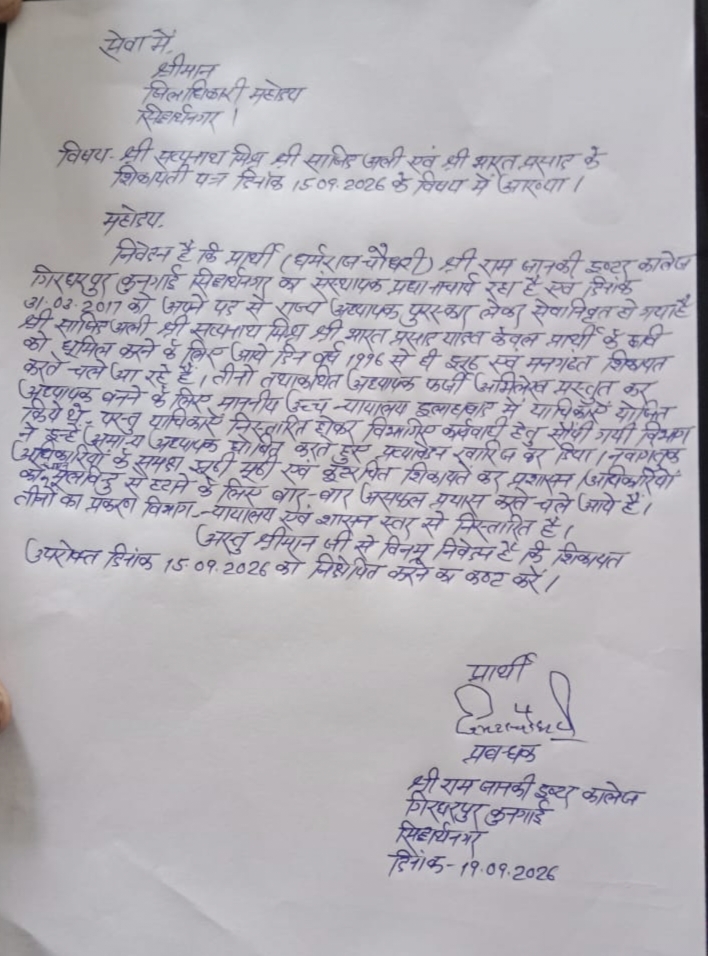 सेवा में,
श्रीमान
जिलाधिकारी महोदय
सिद्धार्थनगर ।
विषय- श्री सत्यनाथ मिश्र श्री साजिद अली एवं श्री भारत प्रसाद के
शिकायती पत्र दिनांक 15.09.2026 के विषय में आख्या ।
महोदय,
निवेदन है कि प्रार्थी (धर्मराज चौधरी) श्री राम जानकी इण्टर कालेज
गिरधरपुर कुनगाई सिद्धार्थनगर का संस्थापक प्रधानाचार्य रहा है एवं दिनांक
31.03.2017 को अपने पद से राज्य अध्यापक पुरस्कार लेकर सेवानिवृत हो गया है
श्री साजिद अली श्री सत्यनाथ मिश्र श्री भारत प्रसाद यादव केवल प्रार्थी के छवि
को धूमिल करने के लिए आये दिन वर्ष 1996 से ही झूठ एवं मनगढ़ंत शिकायत
करते चले आ रहे हैं। तीनों तथाकथित अध्यापक फर्जी अभिलेख प्रस्तुत कर
अध्यापक बनने के लिए माननीय उच्च न्यायालय इलाहाबाद में याचिकाएँ योजित
किये थे, परन्तु याचिकाएँ निस्तारित होकर विभागीय कार्यवाही हेतु सौंपी गयी विभाग
ने इन्हें अमान्य अध्यापक घोषित करते हुए प्रत्यावेदन खारिज कर दिया। नवागतक
अधिकारियों के समक्ष झूठी मूठी एवं कुटरचित शिकायतें कर प्रशासन/अधिकारियों
को मूलबिन्दु से हटाने के लिए बार-बार असफल प्रयास करते चले आये हैं।
तीनों का प्रकरण विभाग-न्यायालय एवं शासन स्तर से निस्तारित है।
अस्तु श्रीमान जी से विनम्र निवेदन है कि शिकायत
उपरोक्त दिनांक 15.09.2026 को निक्षेपित करने का कष्ट करें।
प्रार्थी
प्रबन्धक
श्री राम जानकी इण्टर कालेज
गिरधरपुर कुनगाई
सिद्धार्थनगर
दिनांक-19.09.2026